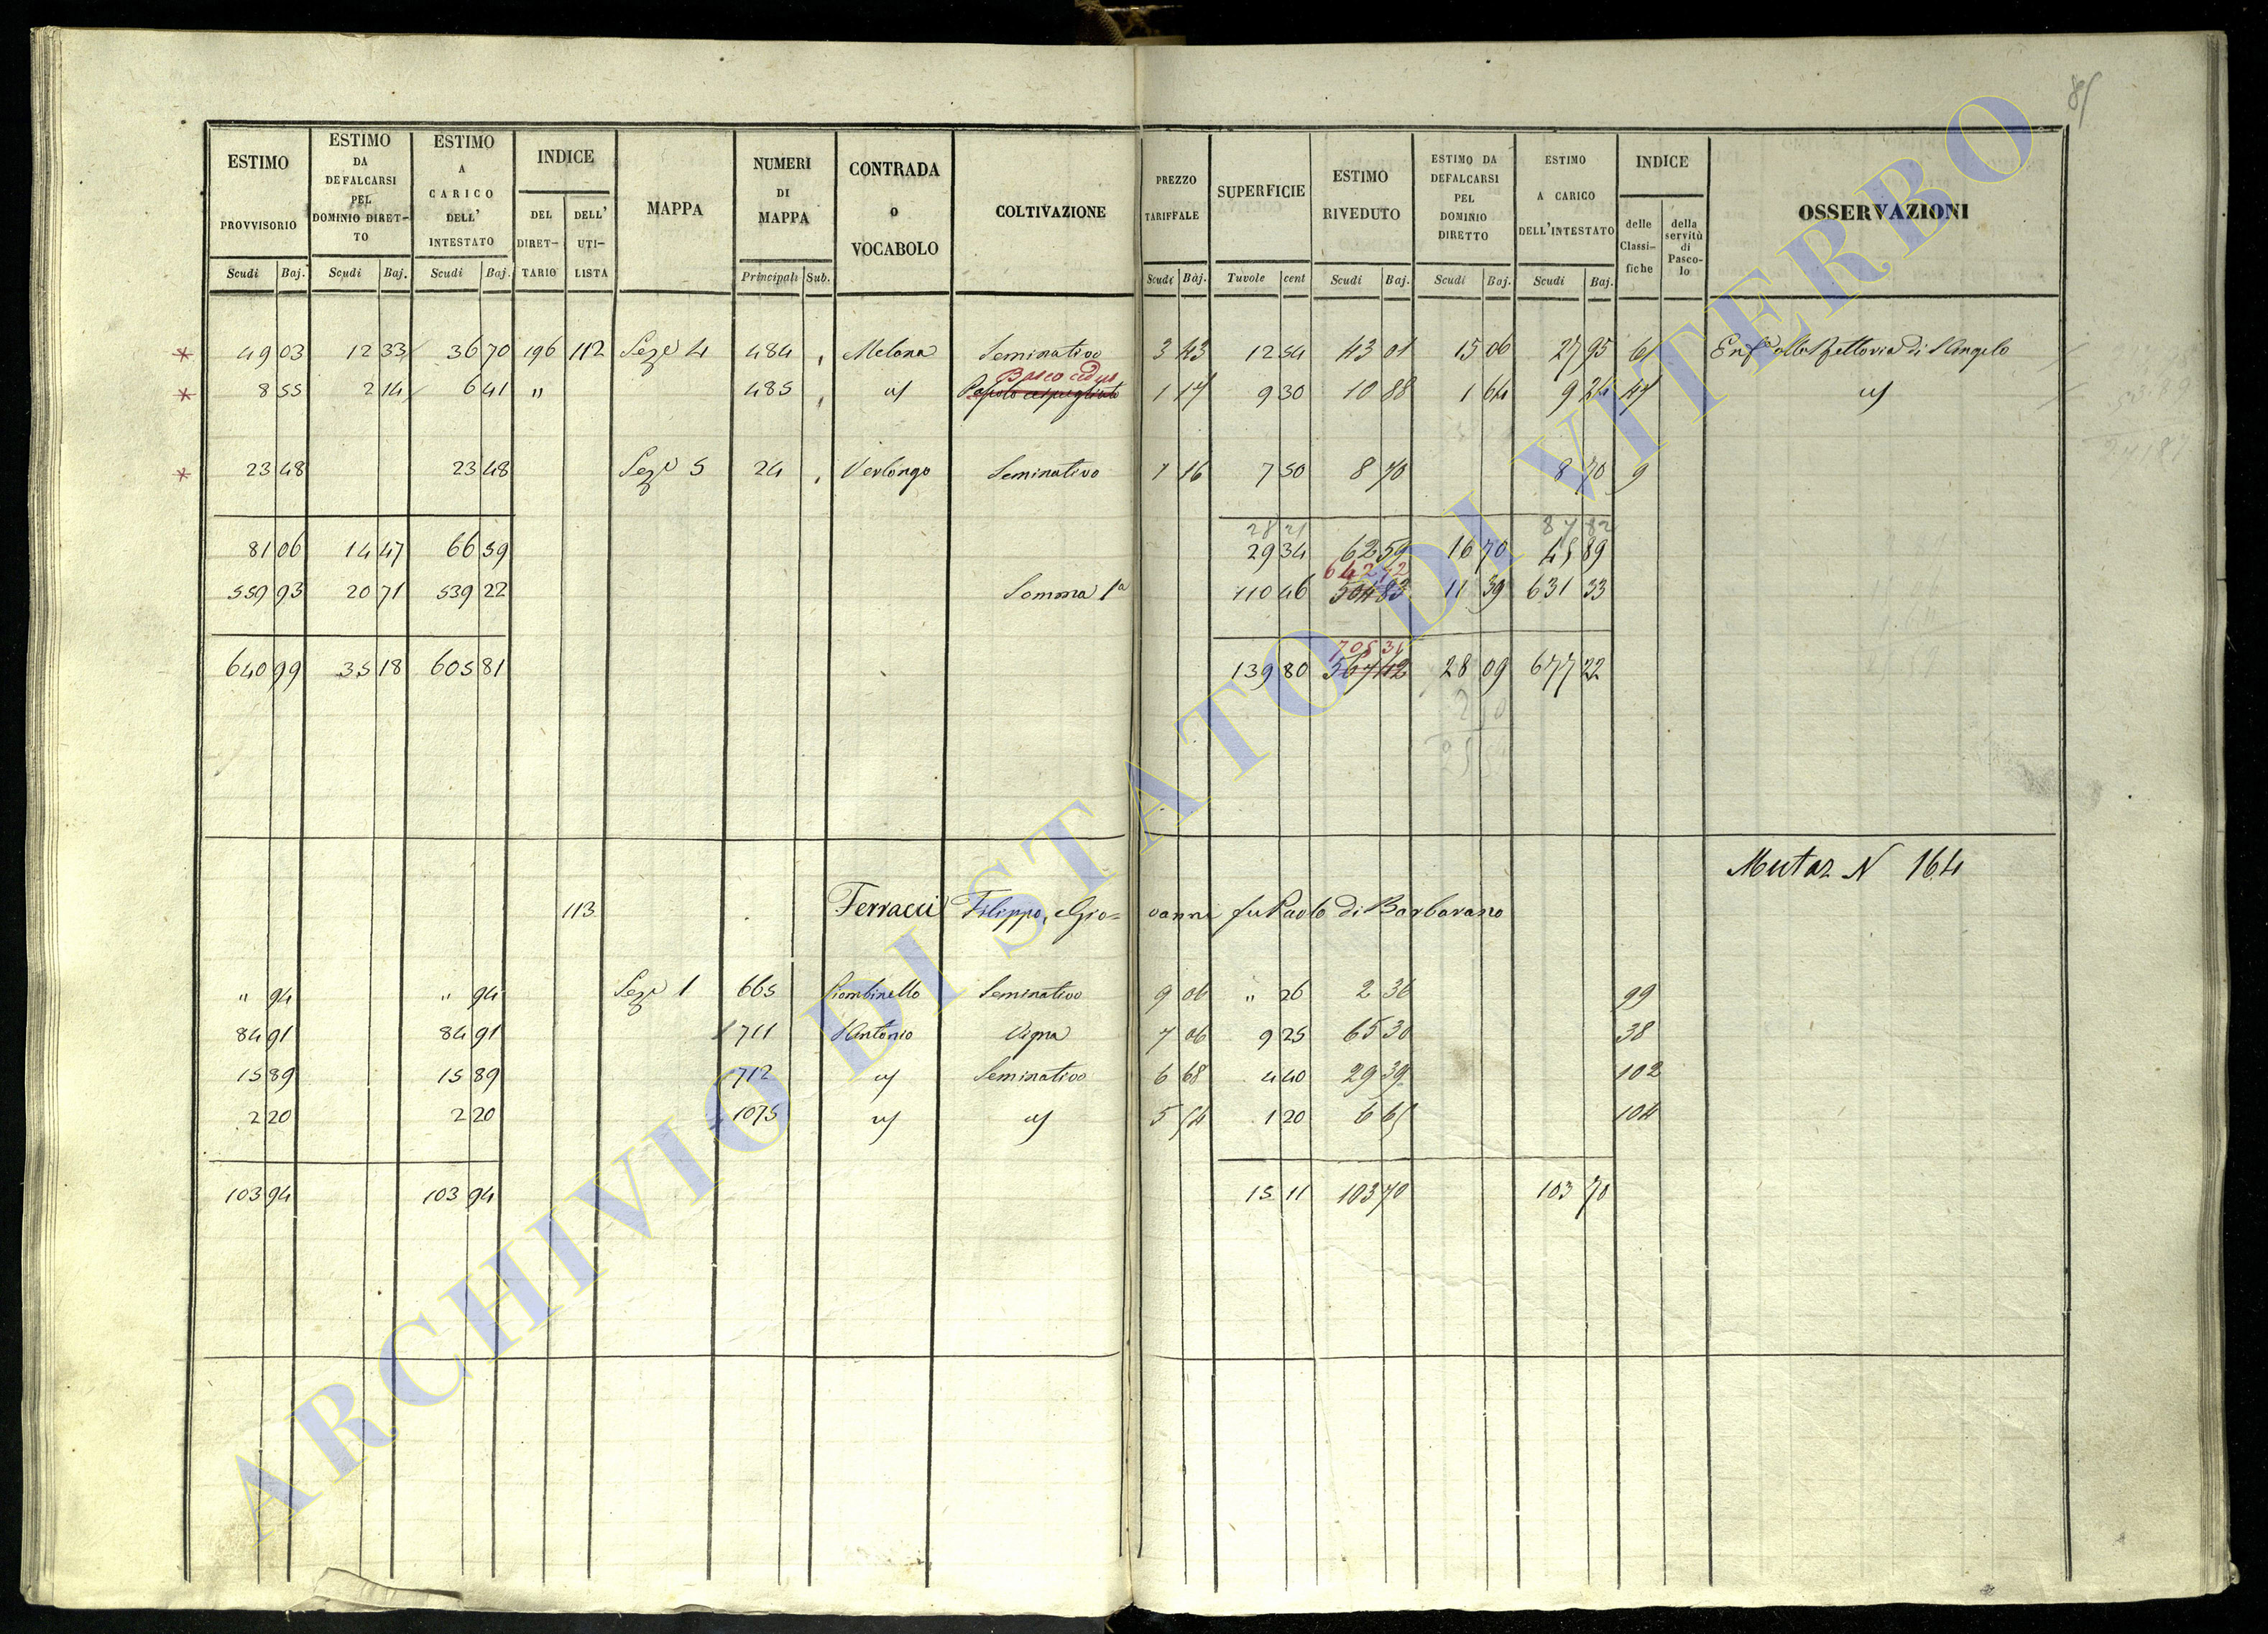 85
ESTIMO PROVVISORIO Scudi Baj. ESTIMO DA DEFALCARSI PEL DOMINIO DIRET-TO Scudi Baj. ESTIMO A CARICO DELL' INTESTATO Scudi Baj. INDICE DEL DIRET-TARIO DELL' UTI-LISTA MAPPA NUMERI DI MAPPA Principali Sub. CONTRADA o VOCABOLO COLTIVAZIONE PREZZO TARIFFALE Scudi Baj. SUPERFICIE Tavole cent ESTIMO RIVEDUTO Scudi Baj. ESTIMO DA DEFALCARSI PEL DOMINIO DIRETTO Scudi Baj. ESTIMO A CARICO DELL'INTESTATO Scudi Baj. INDICE delle Classi-fiche della servitù di Pasco-lo OSSERVAZIONI
* 49 03 12 33 36 70 196 112 Seze 4 484 , Melona Seminativo 3 43 12 54 43 01 15 06 27 95 61 Enfca alla Rettoria di S Angelo
Bosco ceduo
* 8 55 2 14 6 41 " 485 , uj Pascolo cespugliato 1 17 9 30 10 88 1 64 9 24 47 uj
* 23 48 23 48 Seze 5 24 , Verlongo Seminativo 1 16 7 50 8 70 8 70 9
28 21 87 82
81 06 14 47 66 59 29 34 62 59 16 70 45 89
642 72
559 93 20 71 539 22 Somma 1a 110 46 504 83 11 39 631 33
705 31
640 99 35 18 605 81 139 80 567 42 28 09 677 22
Mutaz N 164
113 Ferracci Filippo, e Gio= vanni fu Paolo di Barbarano
" 94 " 94 Seze 1 665 Piombinello Seminativo 9 06 " 26 2 36 99
84 91 84 91 711 S Antonio Vigna 7 06 9 25 65 30 38
15 89 15 89 712 uj Seminativo 6 68 4 40 29 39 102
2 20 2 20 1075 uj uj 5 54 1 20 6 65 104
103 94 103 94 15 11 103 70 103 70
ARCHIVIO DI STATO DI VITERBO